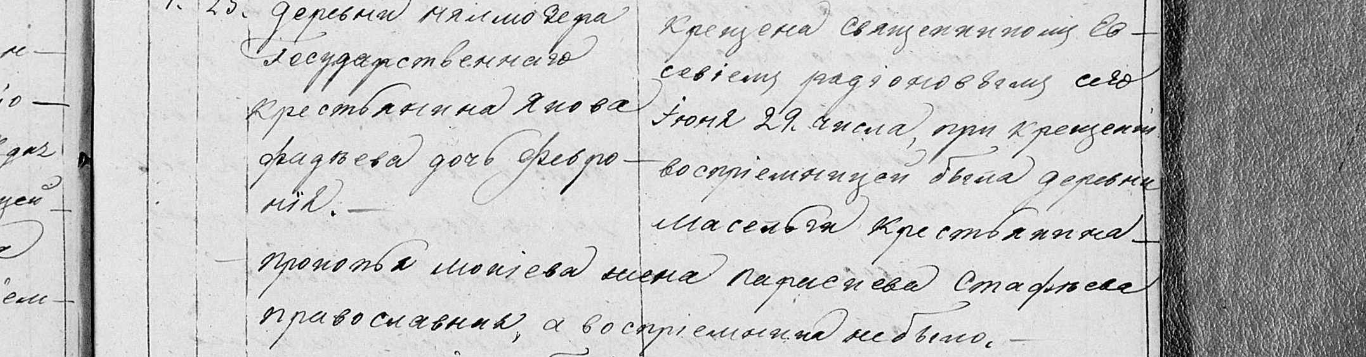 1. 25. деревни нялмозера
Государственнаго
крестьянина Якова
Фадѣева дочь Февро—
нія.—
крещена священникомъ Ев—
севіемъ радіоновымъ сего
Іюня 29. числа, при крещеніи
воспріемницей была деревни
масельги крестьянина—
прокопья мокіева жена Параскева Стафѣева
православная, а воспріемника небыло.—